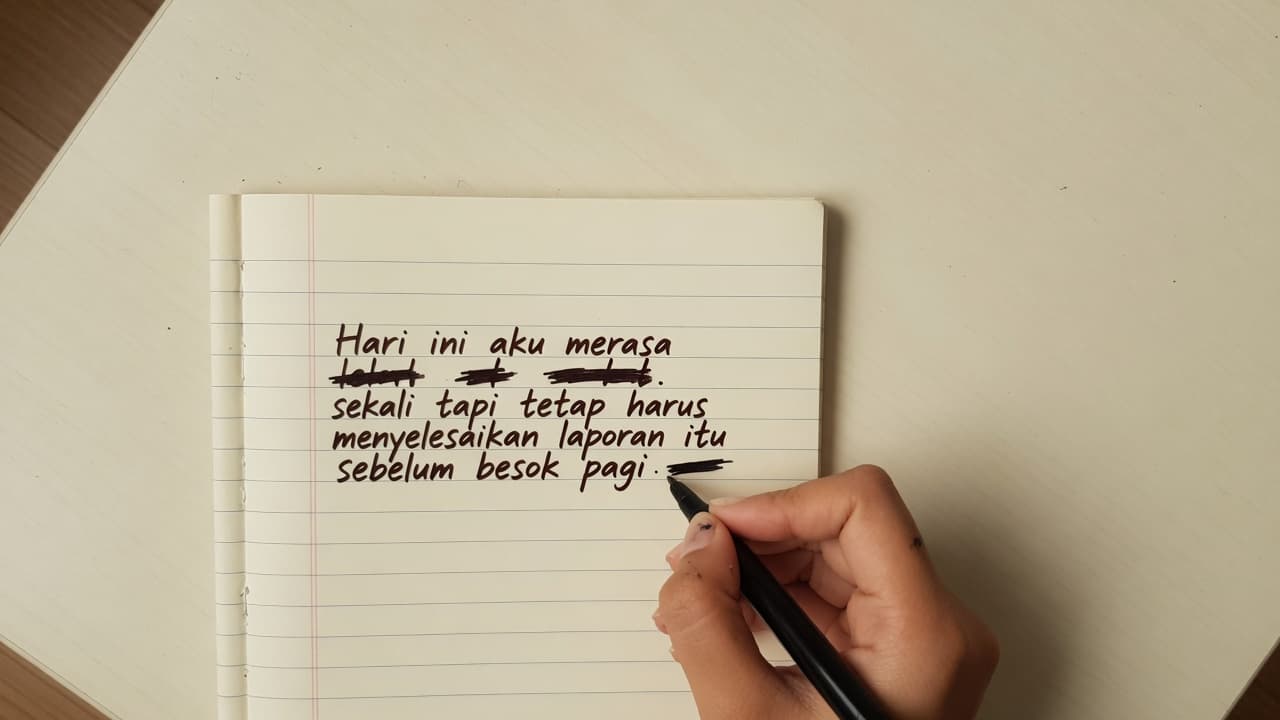 Hari ini aku merasa
sekali tapi tetap harus
menyelesaikan laporan itu
sebelum besok pagi.